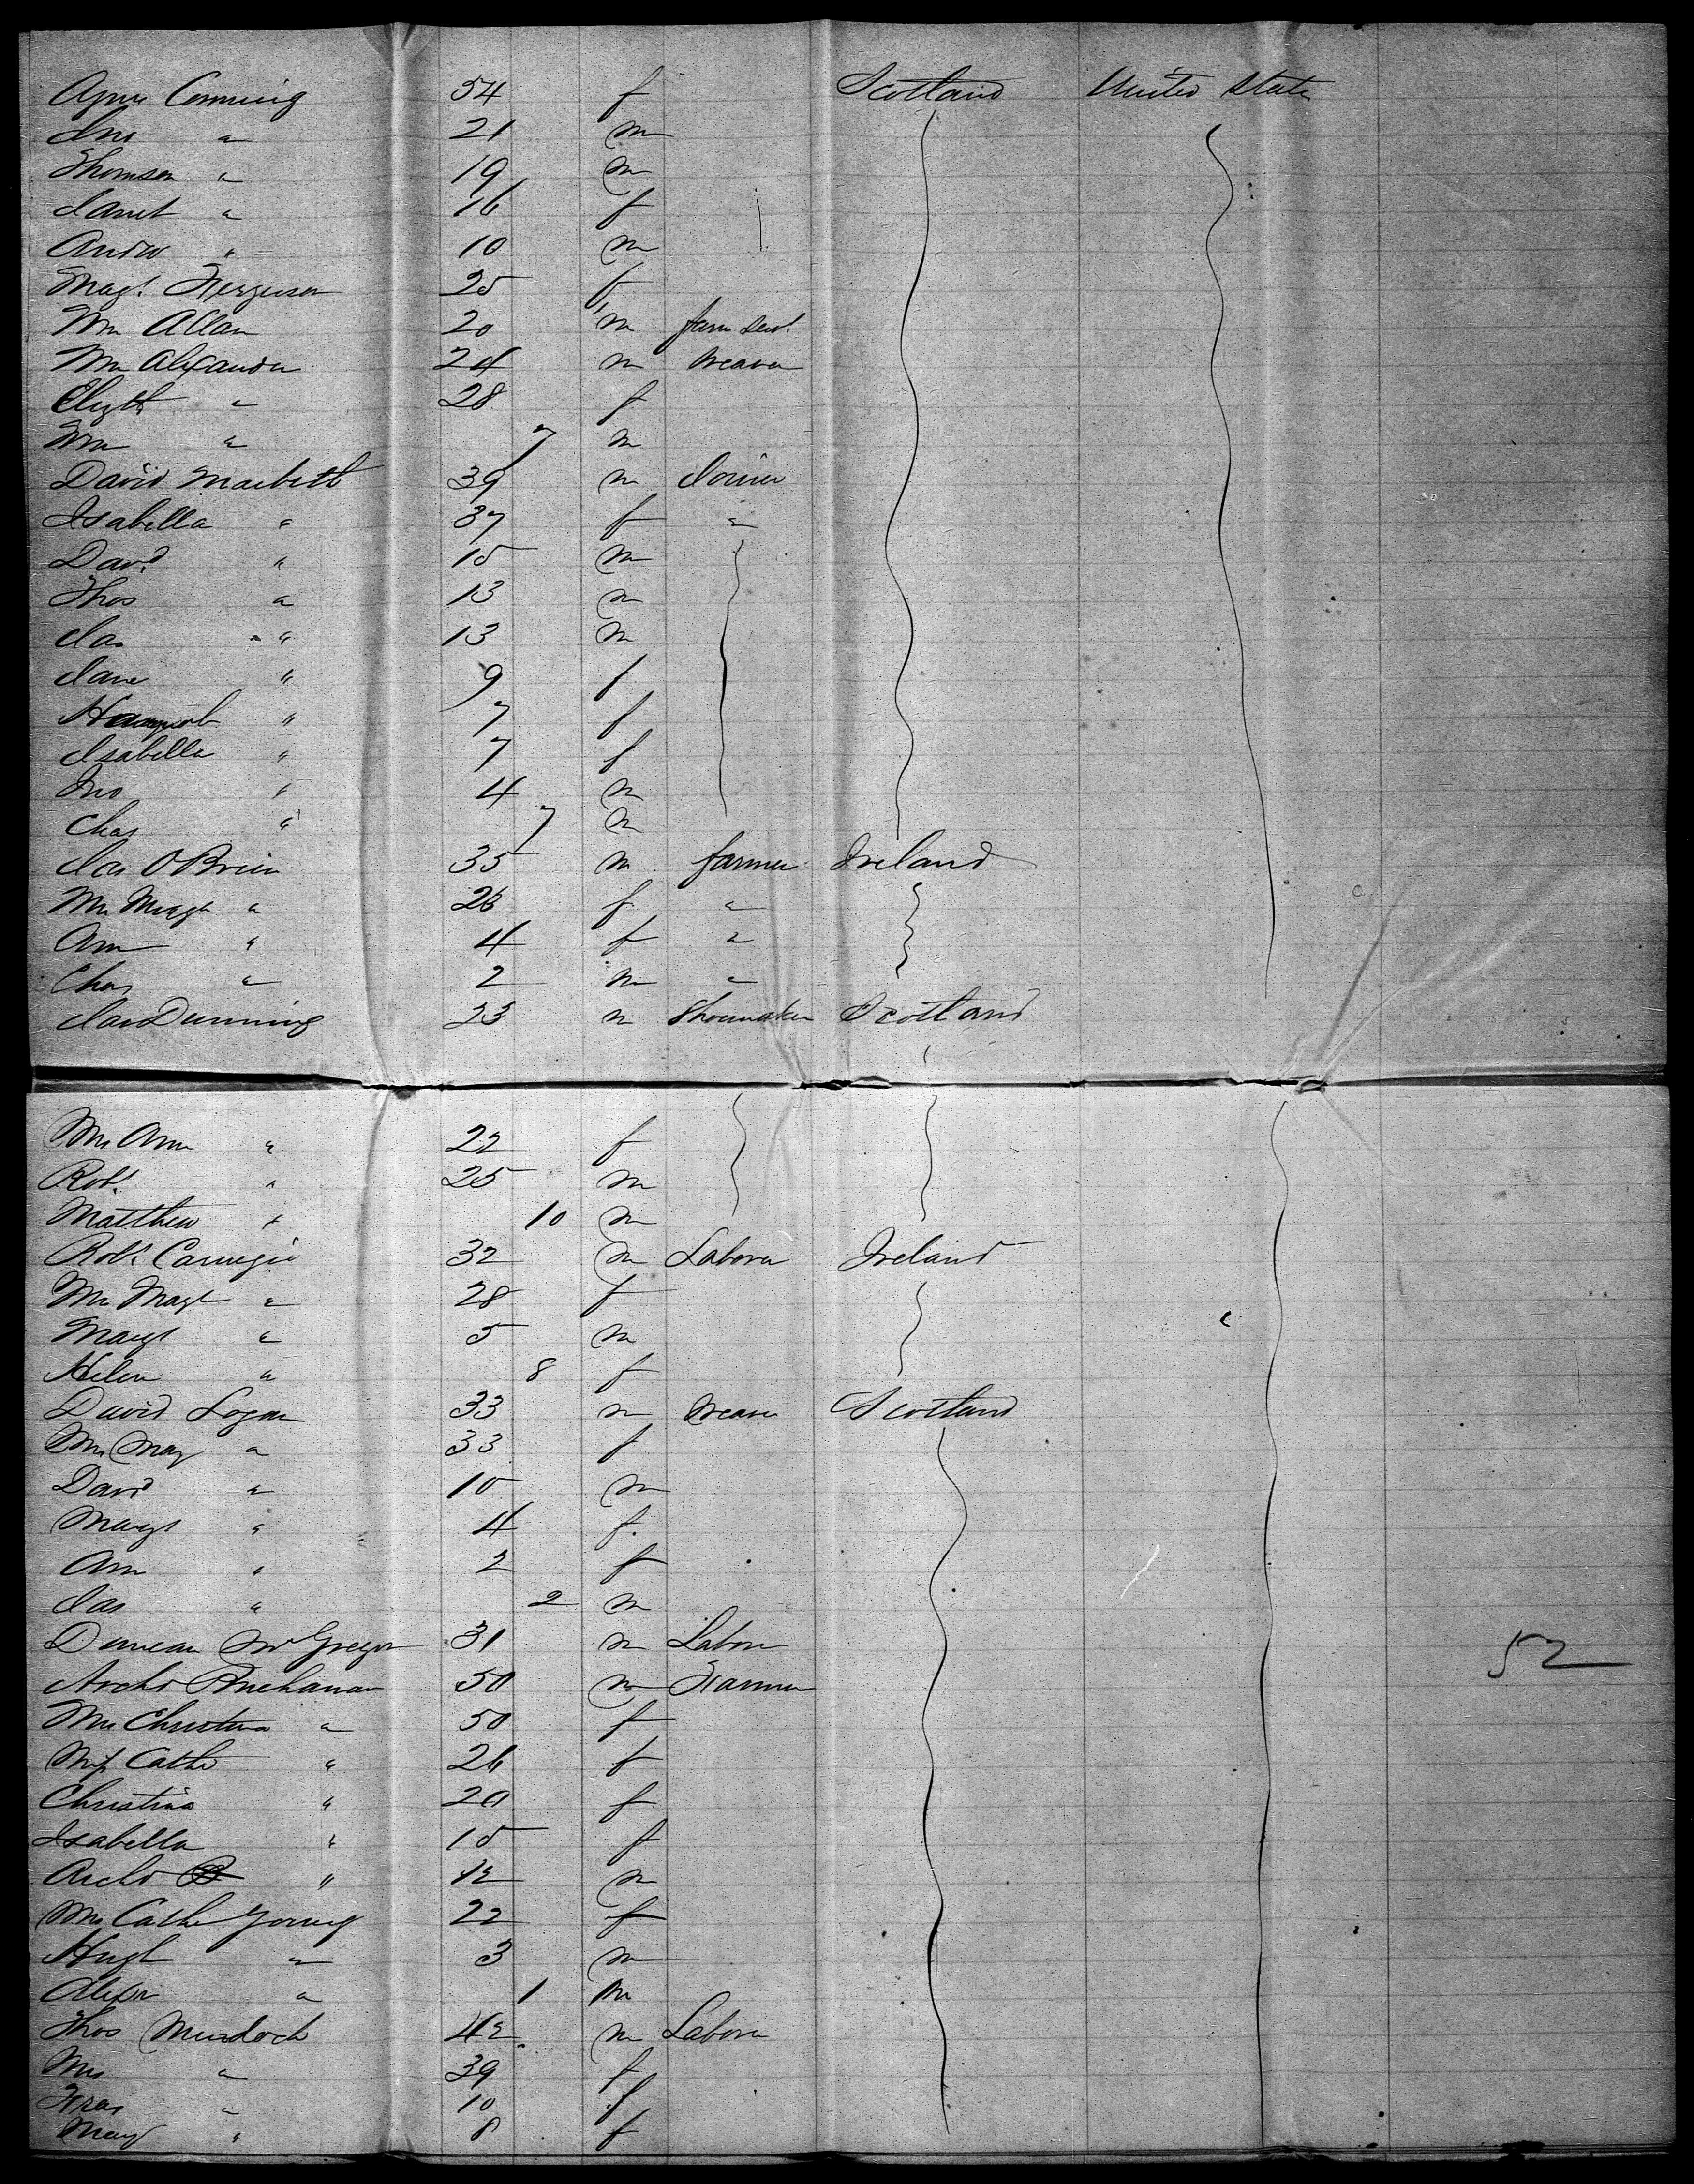 Agnes Cumming 54 f Scotland United States
Jno " 21 m
Thomson " 19 m
Janet " 16 f
Andw " 10 m
Magt. Ferguson 25 f
Wm Allan 20 m farm servt.
Wm Alexander 24 m Weaver
Elizth " 28 f
Wm " 7 m
David Macbeth 39 m Joiner
Isabella " 37 f "
David " 15 m
Thos " 13 m
Jas " 13 m
Jane " 9 f
" 7 f
Isabella " 7 f
Jno " 4 m
Chas " 7 m
Jas O'Brien 35 m farmer Ireland
Mrs Margt " 26 f "
Ann " 4 f "
Chas " 2 m "
Jas Dunning 23 m Shoemaker Scotland
Mrs Ann " 22 f
Robt. " 25 m
Matthew " 10 m
Robt. Carnegie 32 m Labourer Ireland
Mrs Magt " 28 f
Margt " 5 m
Helen " 8 f
David Logan 33 m Weaver Scotland
Mrs Mary " 33 f
David " 10 m
Margt " 4 f
Ann " 2 f
Jas " 2 m
Duncan McGregor 31 m Labour
Archd Buchanan 50 m Farmer
Mrs Christina " 50 f
Miss Cathe " 26 f
Christina " 20 f
Isabella " 15 f
Archd " 12 m
Mrs Cathe Young 22 f
Hugh " 3 m
Alexr " 1 m
Thos Murdoch 42 m Labour
Mrs " 39 f
Fras " 10 f
Mary " 8 f
52